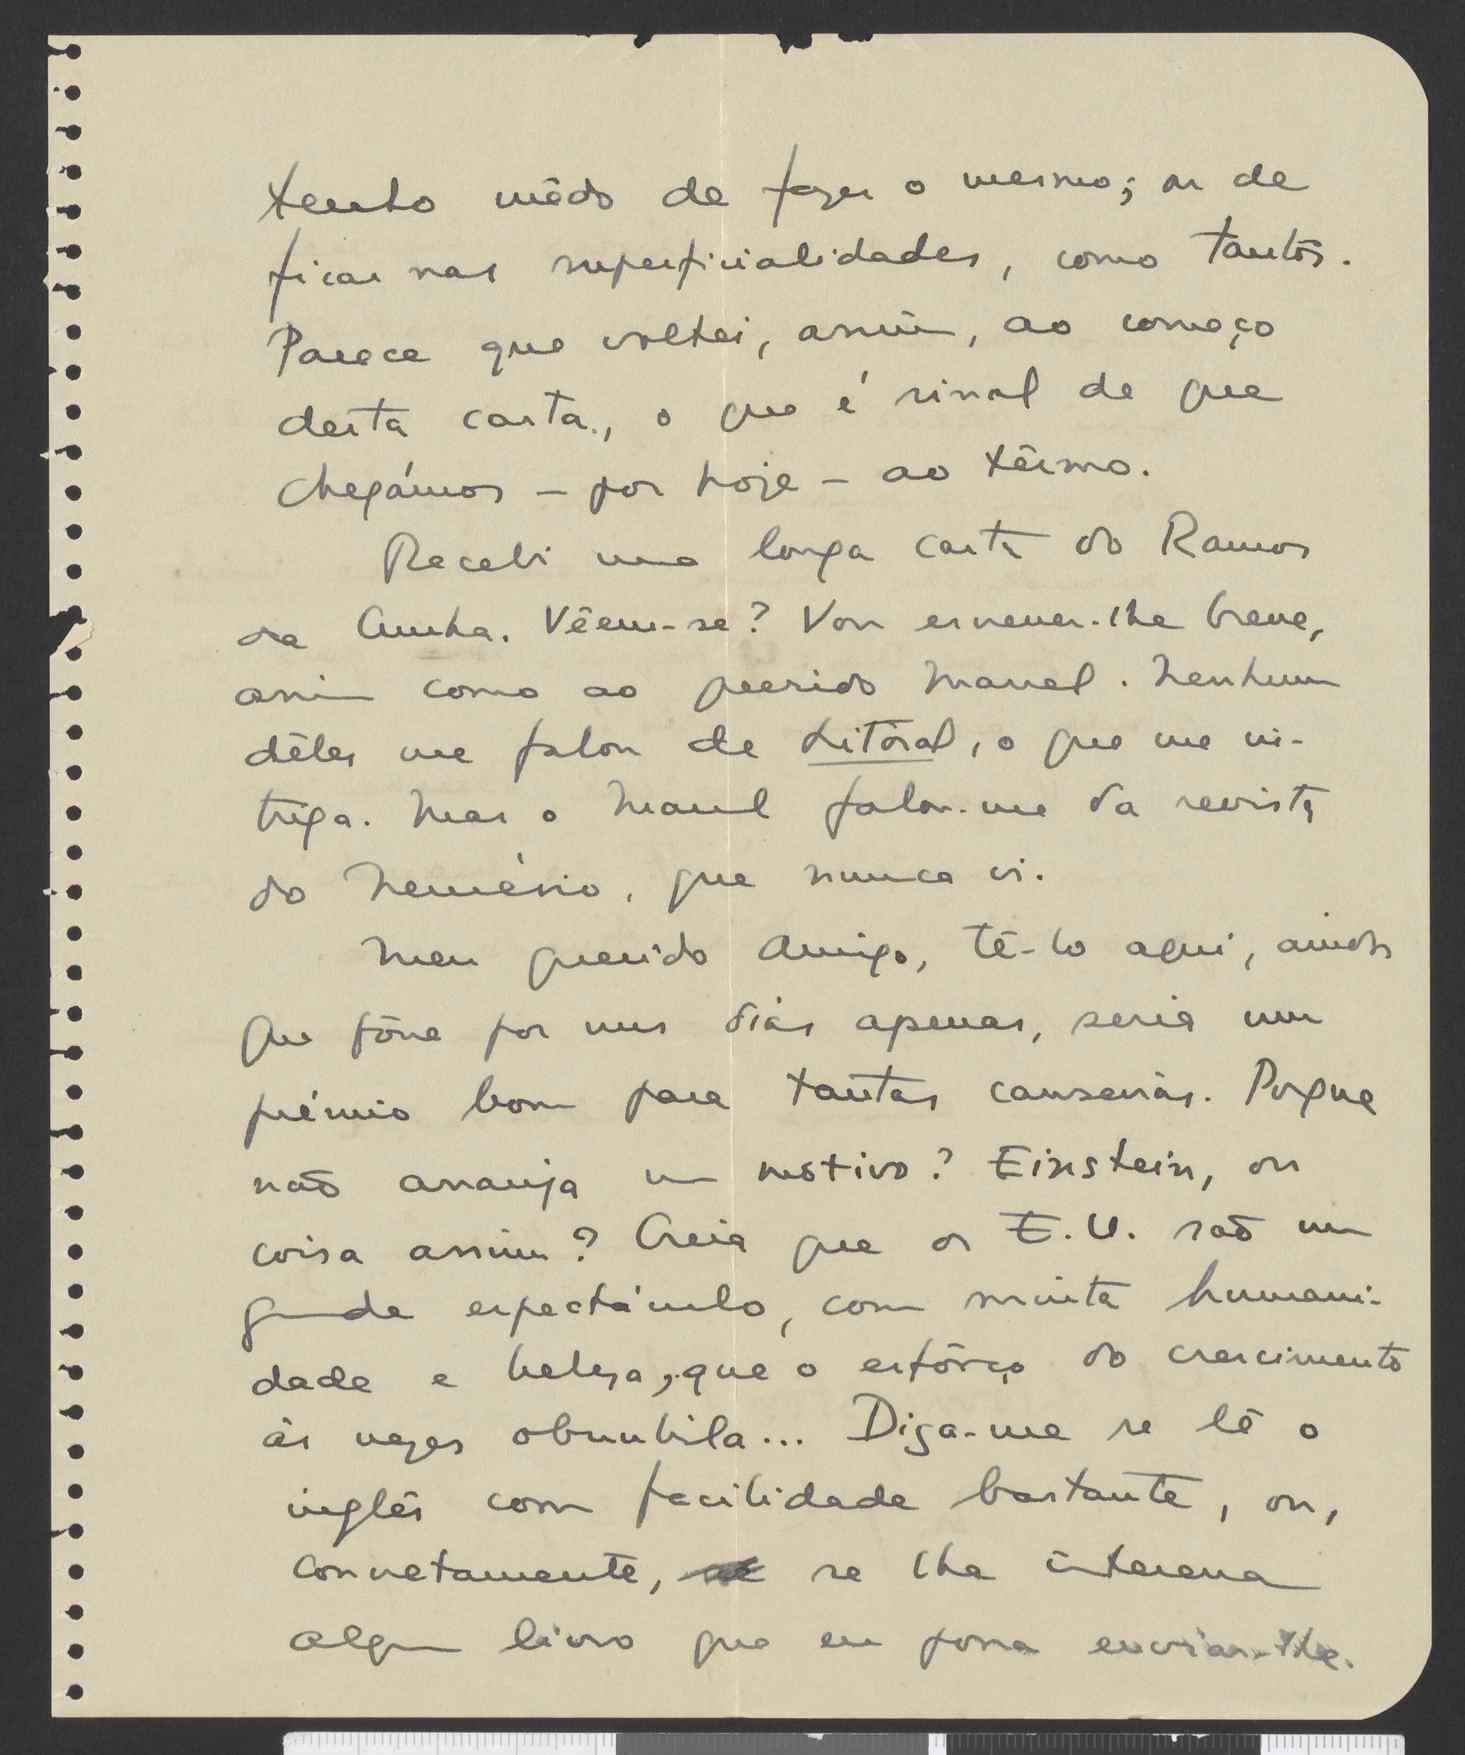 tenho mêdo de fazer o mesmo; ou de
ficar nas superficialidades, como tantos.
Parece que voltei, assim, ao começo
desta carta., o que é sinal de que
chegámos – por hoje – ao têrmo.
Recebi uma longa carta do Ramos
da Cunha. Vêem-se? Vou escrever-lhe breve,
assim como ao querido Manuel. Nenhum
dêles me falou de Litoral, o que me in-
triga. Mas o Manuel falou-me da revista
do Nemésio, que nunca vi.
Meu querido Amigo, tê-lo aqui, ainda
que fôsse por uns dias apenas, seria um
prémio bom para tantas canseiras. Porque
não arranja um motivo? Einstein, ou
coisa assim? Creia que os E.U. são um
grande espectáculo, com muita humani-
dade e beleza, que o esfôrço do crescimento
às vezes obnubila... Diga-me se lê o
inglês com facilidade bastante, ou,
concretamente, se lhe interessa
algum livro que eu possa enviar-lhe.